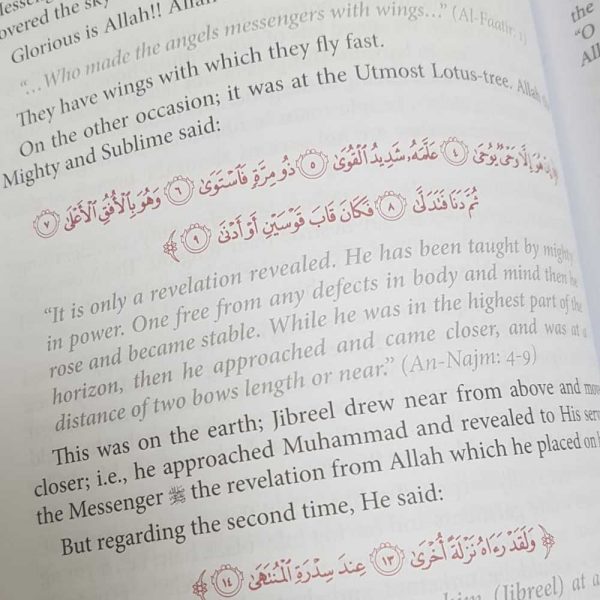 overed the sky
Glorious is Allah!!
"...Who made the angels messengers with wings..." (Al-Faatir: 1)
They have wings with which they fly fast.
On the other occasion; it was at the Utmost Lotus-tree. Allah
Mighty and Sublime said:
هُوَ إِلَّا وَحْيٌ يُوحَىٰ ۝٤ عَلَّمَهُ شَدِيدُ الْقُوَىٰ ۝٥ ذُو مِرَّةٍ فَاسْتَوَىٰ ۝٦ وَهُوَ بِالْأُفُقِ الْأَعْلَىٰ ۝٧
ثُمَّ دَنَا فَتَدَلَّىٰ ۝٨ فَكَانَ قَابَ قَوْسَيْنِ أَوْ أَدْنَىٰ ۝٩ ﴾
"It is only a revelation revealed. He has been taught by mighty
in power. One free from any defects in body and mind then he
rose and became stable. While he was in the highest part of the
horizon, then he approached and came closer, and was at a
distance of two bows length or near." (An-Najm: 4-9)
This was on the earth; Jibreel drew near from above and
closer; i.e., he approached Muhammad and revealed to His
the Messenger ﷺ the revelation from Allah which he placed on
But regarding the second time, He said:
﴿ وَلَقَدْ رَءَاهُ نَزْلَةً أُخْرَىٰ ۝١٣ عِندَ سِدْرَةِ الْمُنتَهَىٰ ۝١٤ ﴾
(Jibreel) at a
the
"O
All